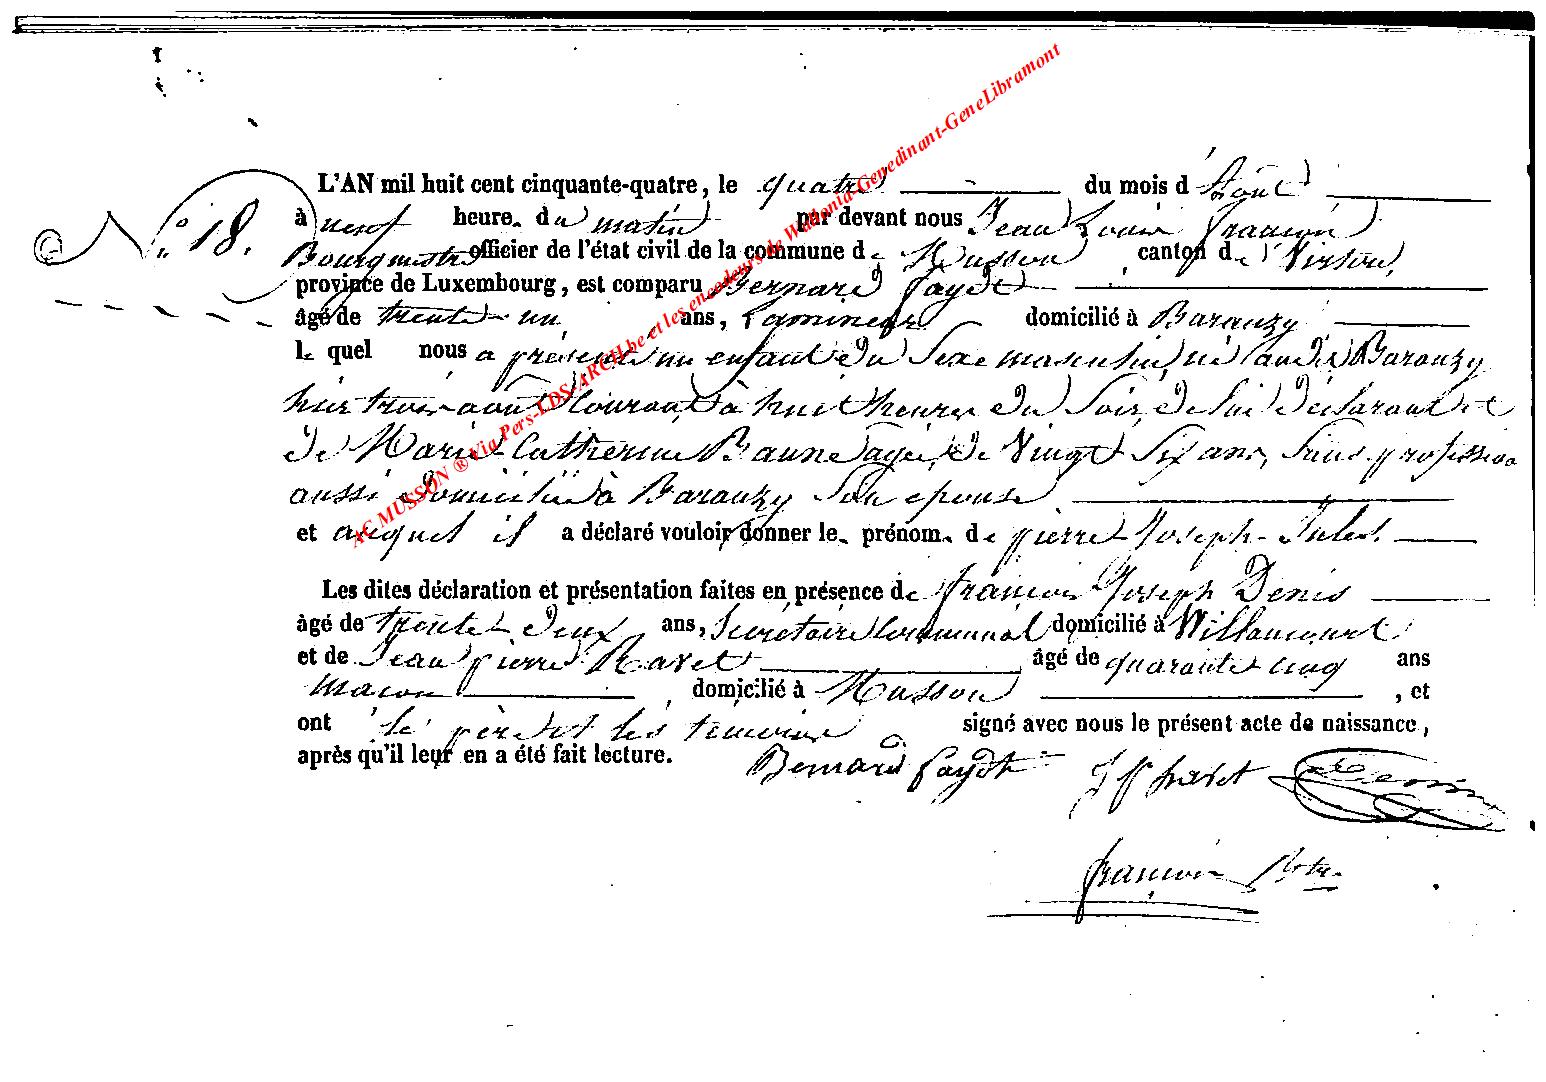 N° 18.
L'AN mil huit cent cinquante-quatre, le quatre du mois d'Août
à neuf heure du matin par devant nous Jean Louis françois
Bourgmestre officier de l'état civil de la commune de Musson canton de Virton,
province de Luxembourg, est comparu Bernard fayot
âgé de trente-un ans, Lamineur domicilié à Baranzy
le quel nous a présenté un enfant du sexe masculin, né audit Baranzy
hier trois août courant à huit heures du soir, de lui déclarant et
de Marie Catherine Baune agée de vingt six ans, sans profession
aussi domiciliée à Baranzy son epouse
et auquel il a déclaré vouloir donner le prénom de pierre Joseph Jules.
Les dites déclaration et présentation faites en présence de françois Joseph Denis
âgé de trente deux ans, Secrétaire Communal domicilié à Willancourt
et de Jean pierre Ravet âgé de quarante cinq ans
maçon domicilié à Musson, et
ont le père et les temoins signé avec nous le présent acte de naissance,
après qu'il leur en a été fait lecture.
Bernard fayot JP Travet Denis
françois Btre
AC MUSSON ® Via Pers-LDS/ARCH.be et les encodeurs de Wallonia-Genedinant-GeneLibramont